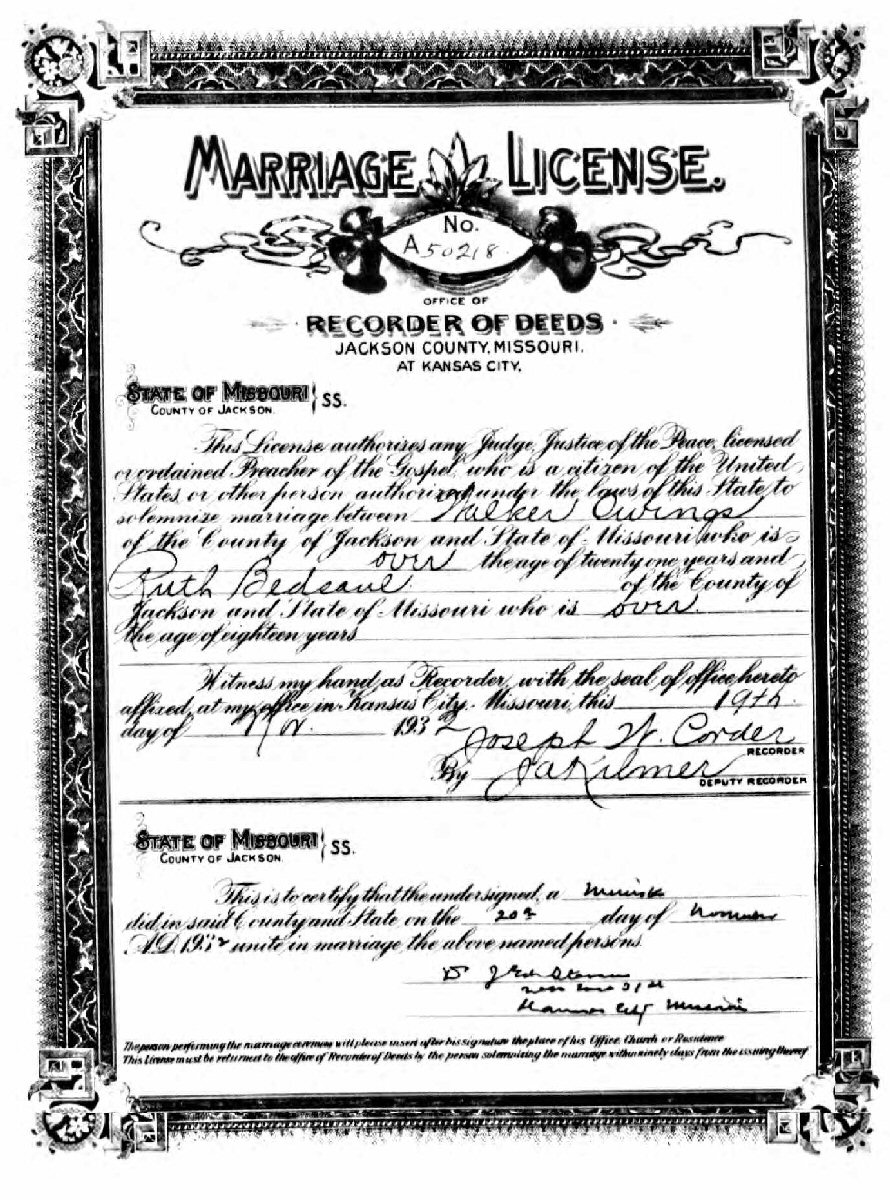 MARRIAGE LICENSE.
No.
A 50218.
OFFICE OF
RECORDER OF DEEDS
JACKSON COUNTY, MISSOURI.
AT KANSAS CITY,
STATE OF MISSOURI
COUNTY OF JACKSON. SS.
This License authorizes any Judge, Justice of the Peace, licensed
or ordained Preacher of the Gospel, who is a citizen of the United
States, or other person authorized under the laws of this State, to
solemnize marriage between Walker Owings
of the County of Jackson and State of Missouri who is
over the age of twenty one years and
Ruth Bedsaul of the County of
Jackson and State of Missouri who is over
the age of eighteen years
Witness my hand as Recorder, with the seal of office hereto
affixed, at my office in Kansas City, Missouri, this 19th
day of Nov. 1932
Joseph W. Corder
RECORDER
By J A Kilmer
DEPUTY RECORDER
STATE OF MISSOURI
COUNTY OF JACKSON SS.
This is to certify that the undersigned, a
did, in said County and State on the 20th day of
A.D. 1932 unite in marriage the above named persons
Kansas City Missouri
The person performing the marriage ceremony will please insert after his signature the place of his Office, Church or Residence
This License must be returned to the office of Recorder of Deeds by the person solemnizing the marriage within ninety days from the issuing thereof